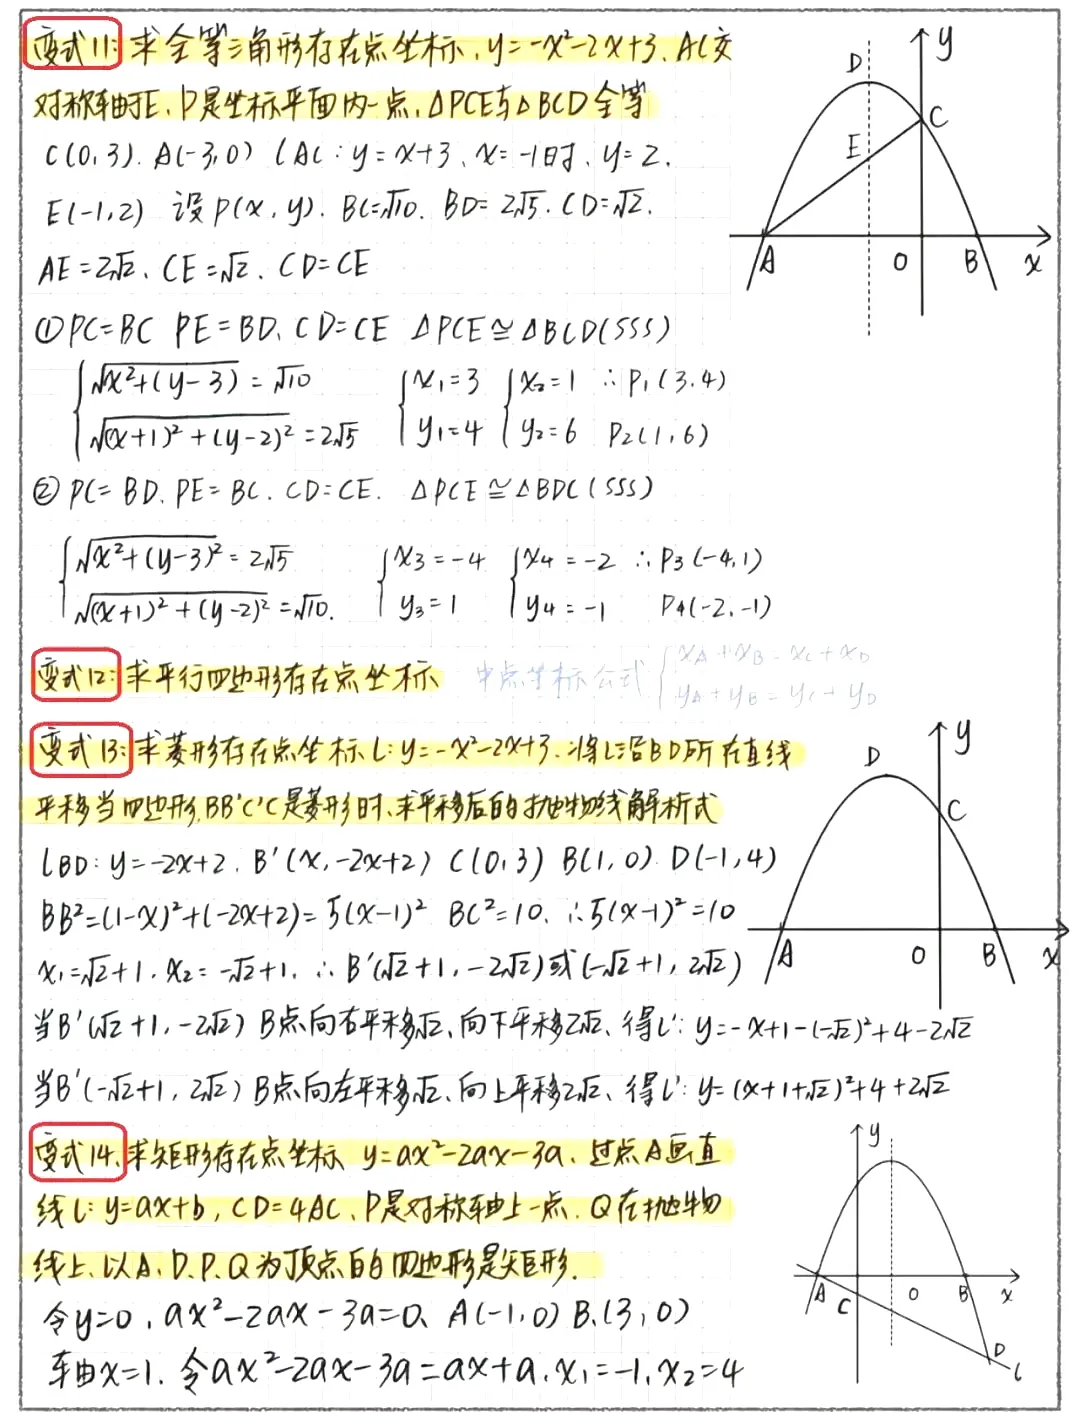 变式11:求全等三角形存在点坐标,y=-x²-2x+3,AC交
对称轴于E,P是坐标平面内一点,△PCE与△BCD全等
C(0,3).A(-3,0) lAC:y=x+3、x=-1时、y=2.
E(-1,2) 设P(x,y). BC=√10. BD=2√5. CD=√2.
AE=2√2、CE=√2、CD=CE
①PC=BC PE=BD、CD=CE △PCE≌△BCD(SSS)
√x²+(y-3)=√10 x₁=3 x₂=1 ∴P₁(3.4)
√(x+1)²+(y-2)²=2√5 y₁=4 y₂=6 P₂(1,6)
②PC=BD、PE=BC. CD=CE. △PCE≌△BDC(SSS)
√x²+(y-3)²=2√5 x₃=-4 x₄=-2 ∴P₃(-4,1)
√(x+1)²+(y-2)²=√10. y₃=1 y₄=-1 P₄(-2,-1)
变式12:求平行四边形存在点坐标 中点坐标公式 xA+xB=xC+xD
yA+yB=yC+yD
变式13:求菱形存在点坐标L:y=-x²-2x+3.将L沿BD所在直线
平移当四边形BB'C'C是菱形时、求平移后的抛物线解析式
lBD:y=-2x+2. B'(x,-2x+2) C(0,3) B(1,0) D(-1,4)
BB²=(1-x)²+(-2x+2)=5(x-1)² BC²=10. ∴5(x-1)²=10
x₁=√2+1. x₂=-√2+1. ∴B'(√2+1,-2√2)或(-√2+1,2√2)
当B'(√2+1,-2√2)B点向右平移√2、向下平移2√2、得L':y=-x+1-(-√2)²+4-2√2
当B'(-√2+1,2√2)B点向左平移√2、向上平移2√2、得L':y=(x+1+√2)²+4+2√2
变式14、求矩形存在点坐标 y=ax²-2ax-3a、过点A画直
线l:y=ax+b,CD=4AC、P是对称轴上一点.Q在抛物
线上、以A、D、P、Q为顶点的四边形是矩形.
令y=0,ax²-2ax-3a=0、A(-1,0) B、(3,0)
轴x=1.令ax²-2ax-3a=ax+a、x₁=-1,x₂=4
y
D
C
E
A
O
B
x
y
D
C
A
O
B
x
y
A
C
O
B
x
D
l